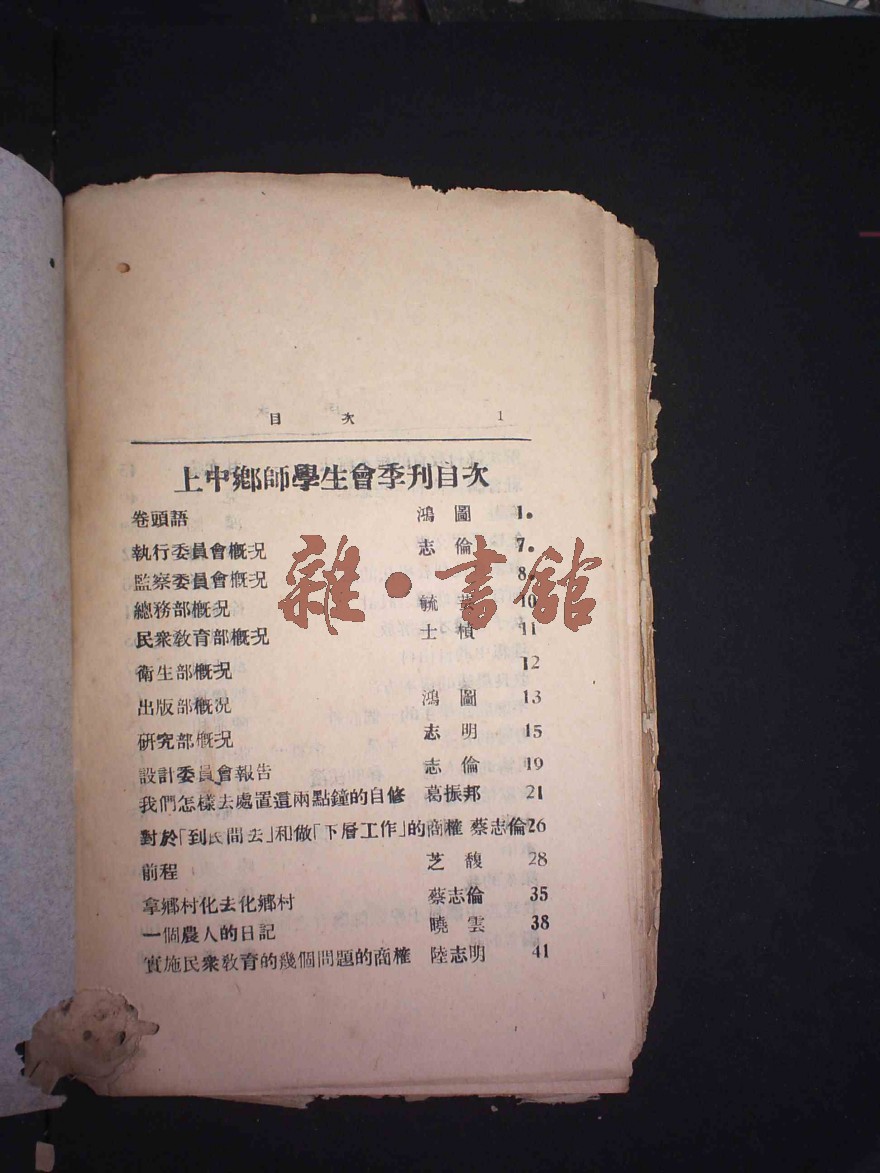 目 次 1
上中鄉師學生會季刊目次
卷頭語 鴻圖 1.
執行委員會概況 志倫 7.
監察委員會概況 8.
總務部概況 毓 10
民衆教育部概況 士楨 11
衛生部概況 12
出版部概況 鴻圖 13
研究部概況 志明 15
設計委員會報告 志倫 19
我們怎樣去處置這兩點鐘的自修 葛振邦 21
對於「到民間去」和做「下層工作」的商榷 蔡志倫 26
前程 芝馥 28
拿鄉村化去化鄉村 蔡志倫 35
一個農人的日記 曉雲 38
實施民衆教育的幾個問題的商榷 陸志明 41
雜·書舘